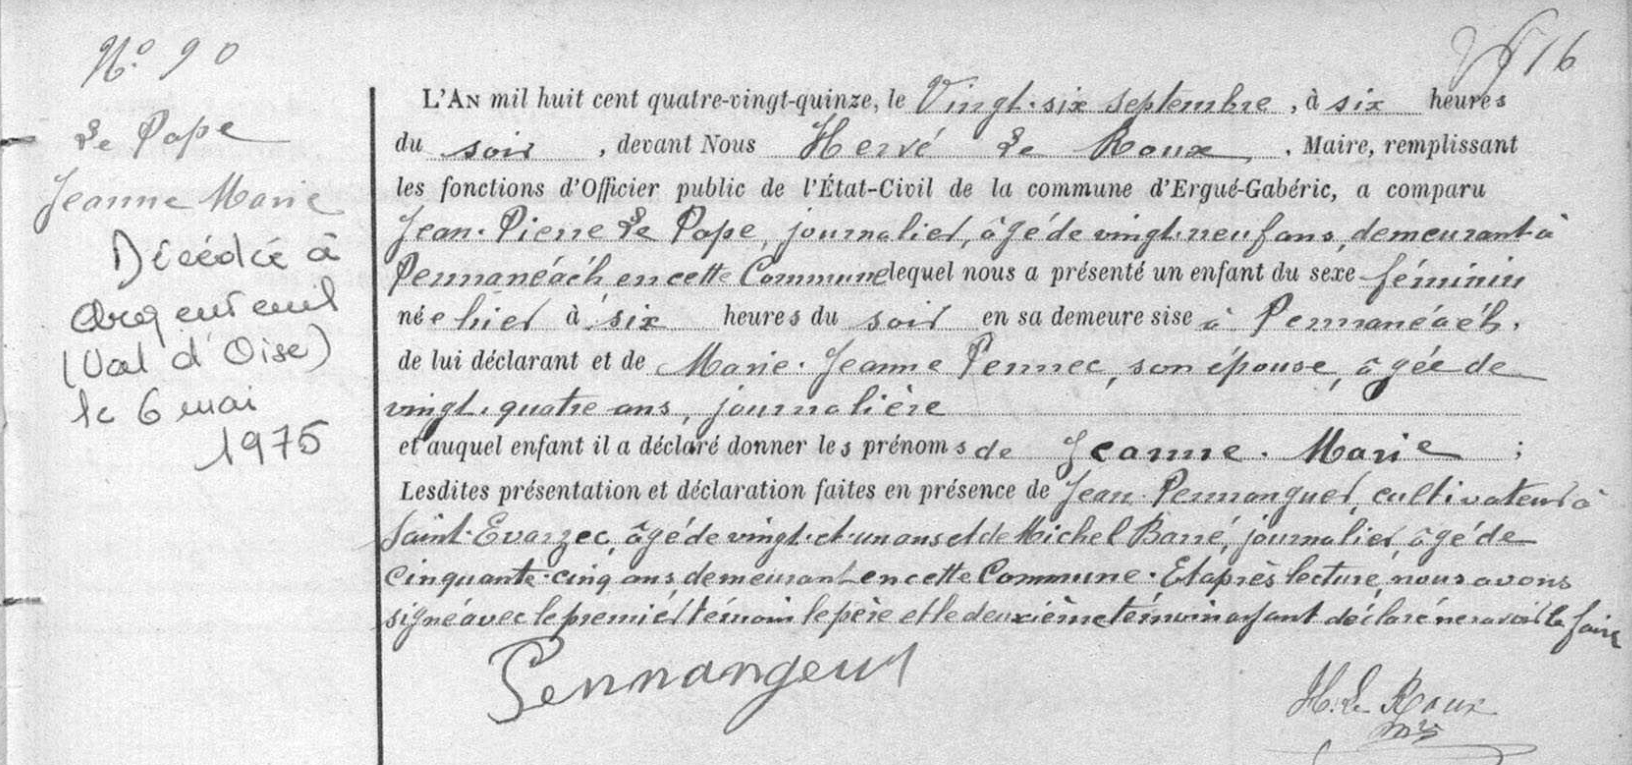 N.° 90
Le Pape
Jeanne Marie
Décédée à
Argenteuil
(Val d'Oise)
le 6 mai
1975
16
L'AN mil huit cent quatre-vingt-quinze, le Vingt-six septembre, à six heures
du soir, devant Nous Hervé Le Roux, Maire, remplissant
les fonctions d'Officier public de l'État-Civil de la commune d'Ergué-Gabéric, a comparu
Jean-Pierre Le Pape, journalier, âgé de vingt-neuf ans, demeurant à
Pennanéac'h en cette Commune lequel nous a présenté un enfant du sexe féminin
née hier à six heures du soir en sa demeure sise à Pennanéac'h,
de lui déclarant et de Marie-Jeanne Pennec, son épouse, âgée de
vingt-quatre ans, journalière
et auquel enfant il a déclaré donner les prénoms de Jeanne-Marie ;
Lesdites présentation et déclaration faites en présence de Jean Pennanguer, cultivateur à
Saint-Evarzec, âgé de vingt-et-un ans et de Michel Barré, journalier, âgé de
Cinquante-cinq ans, demeurant en cette Commune. Et après lecture, nous avons
signé avec le premier témoin le père et le deuxième témoin ayant déclaré ne savoir le faire
Pennangeur
H. Le Roux